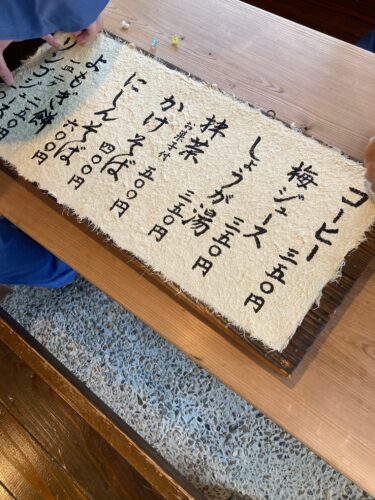 コーヒー 三五〇円
梅ジュース 三五〇円
しょうが湯 三五〇円
抹茶 お菓子付 五〇〇円
かけそば 四〇〇円
にしんそば 六〇〇円
よもぎ餅